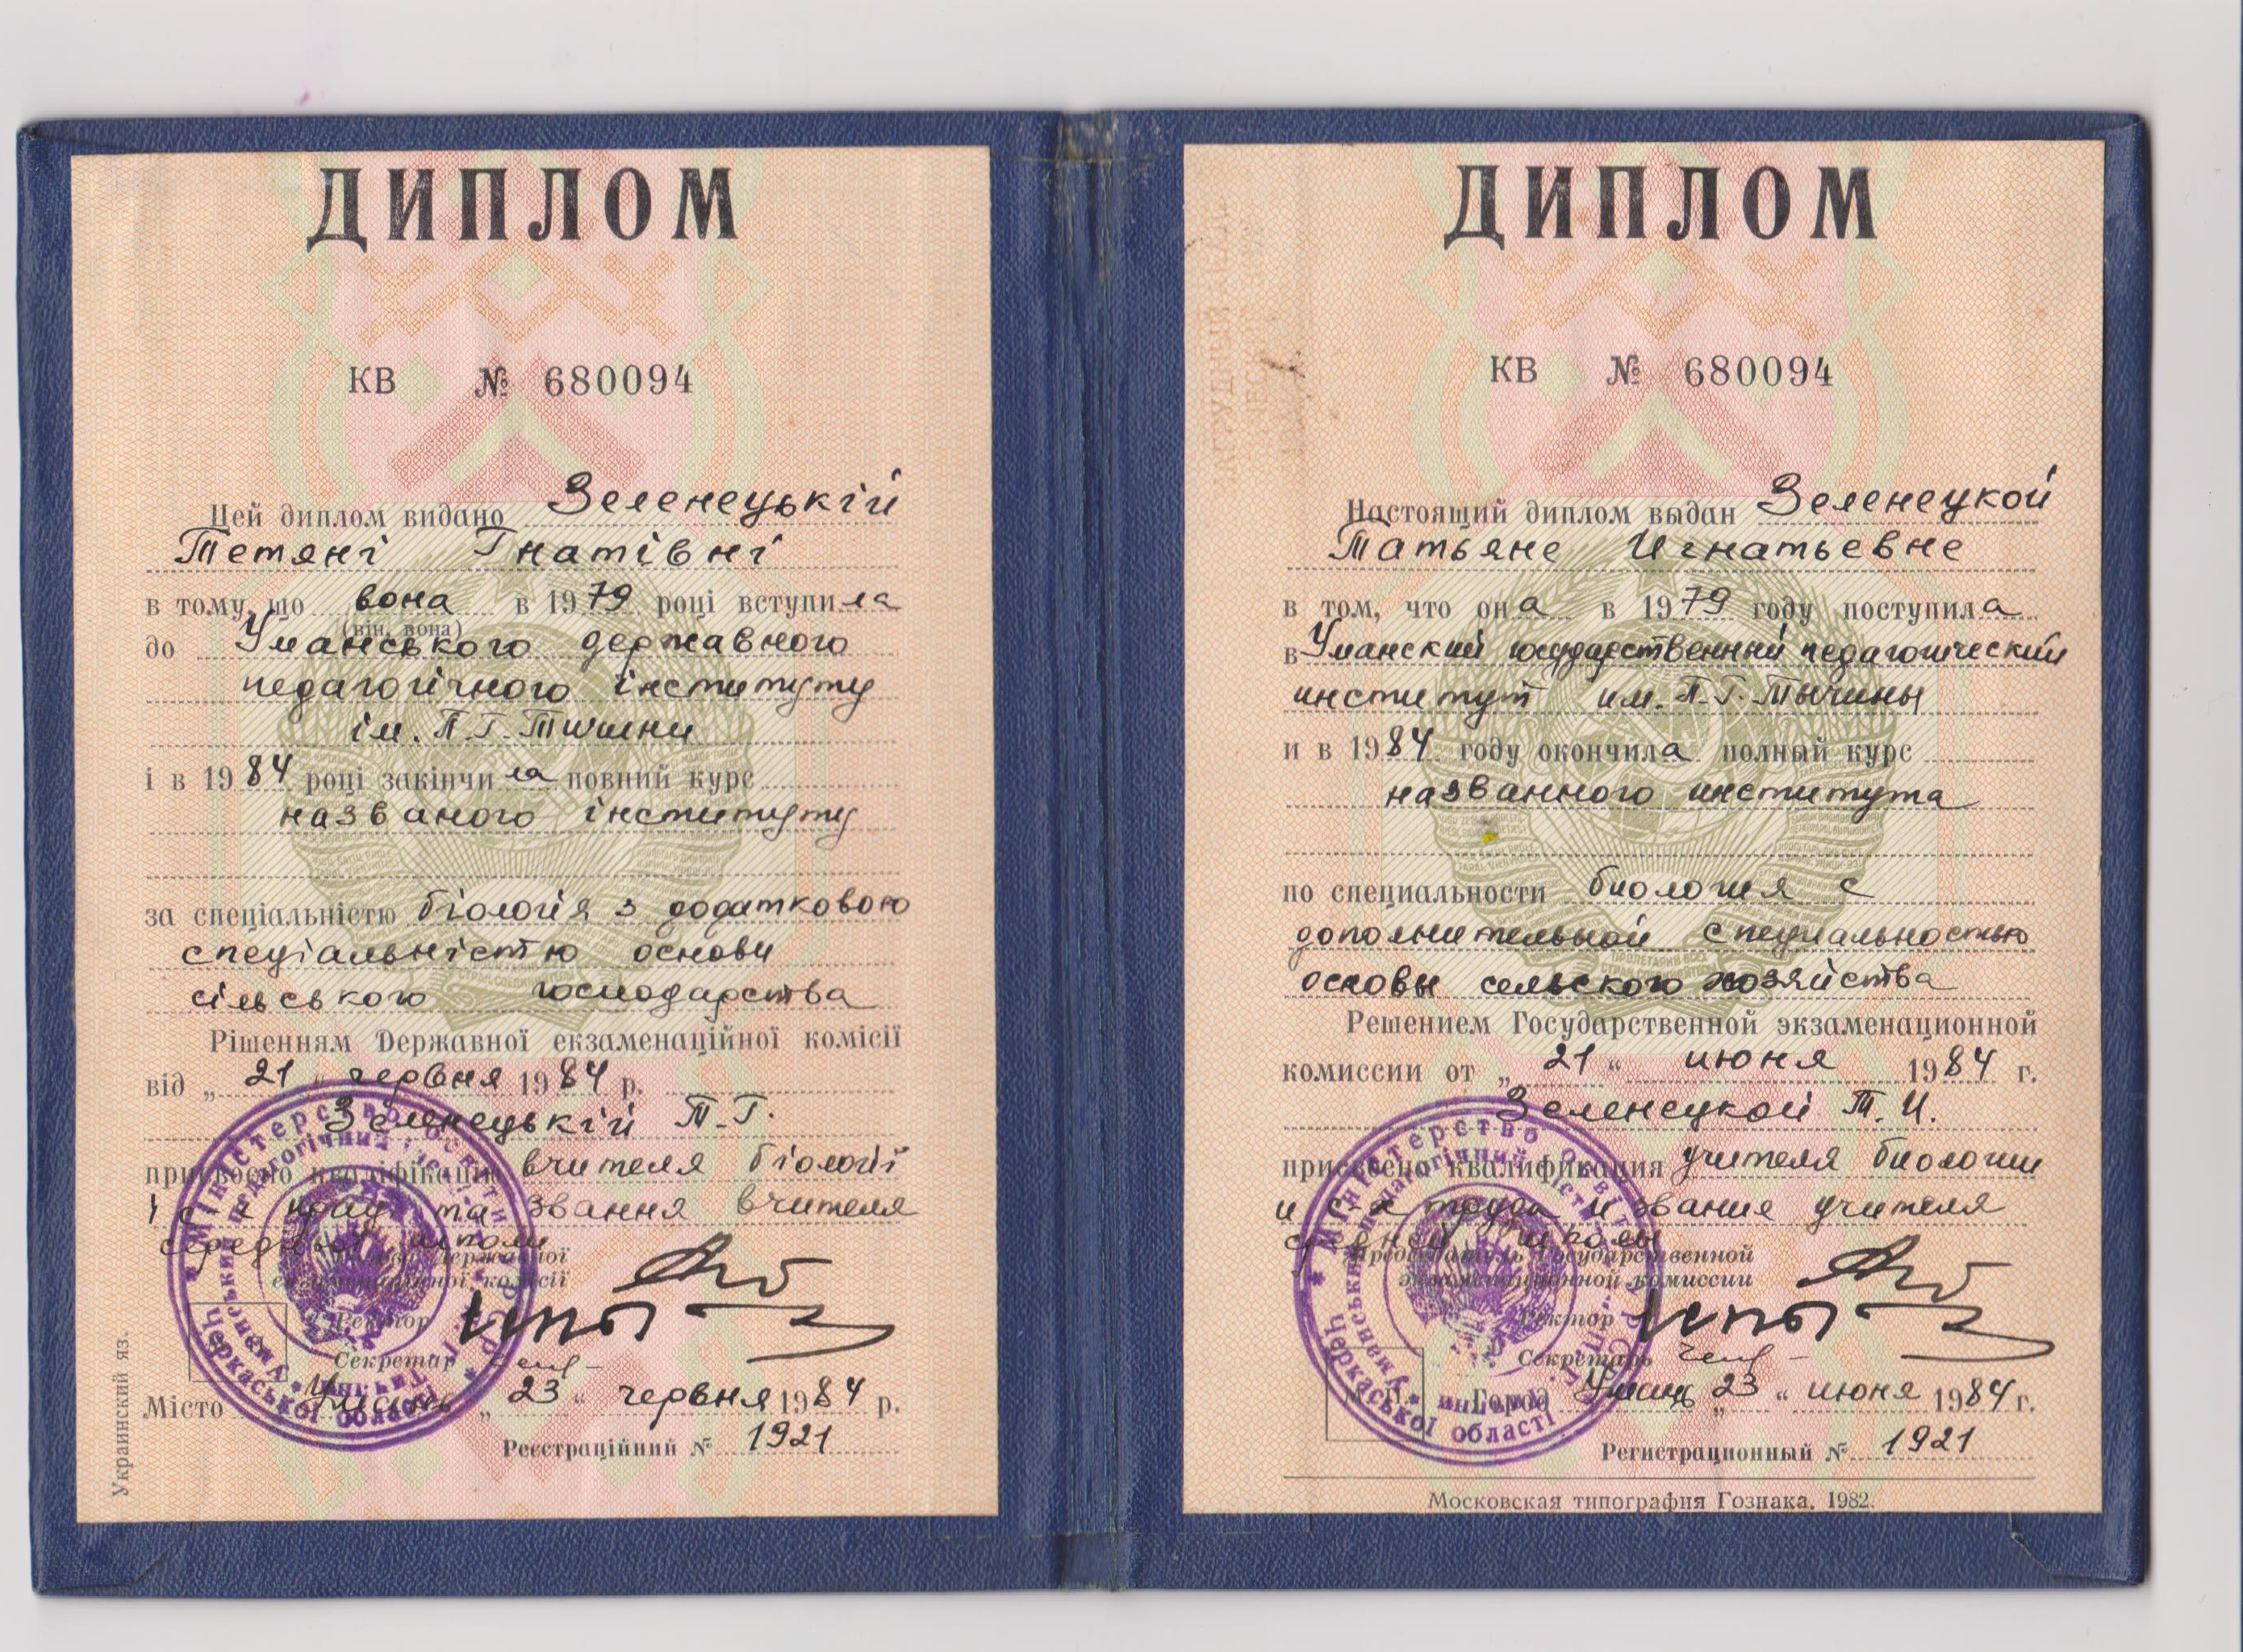 ДИПЛОМ
КВ № 680094
Цей диплом видано Зеленецькій
Тетяні Гнатівні
в тому, що вона в 1979 році вступила
(він, вона)
до Уманського державного
педагогічного інституту
ім. П.Г. Тичини
і в 1984 році закінчила повний курс
названого інституту
за спеціальністю біологія з додатковою
спеціальністю основи
сільського господарства
Рішенням Державної екзаменаційної комісії
від „21“ червня 1984 р.
Зеленецькій Т.Г.
присвоєно кваліфікацію вчителя біології
і с г праці та звання вчителя
середньої школи
Державної
екзаменаційної комісії
Ректор
Секретар
Місто Умань „23“ червня 1984 р.
Реєстраційний № 1921
Украинский яз.
Міністерство освіти УРСР
Черкаської області
ДИПЛОМ
КВ № 680094
Настоящий диплом выдан Зеленецкой
Татьяне Игнатьевне
в том, что она в 1979 году поступила
в Уманский государственный педагогический
институт им. П.Г. Тычины
и в 1984 году окончила полный курс
названного института
по специальности биология с
дополнительной специальностью
основы сельского хозяйства
Решением Государственной экзаменационной
комиссии от „21“ июня 1984 г.
Зеленецкой Т.И.
присвоена квалификация учителя биологии
и с х труда и звание учителя
средней школы
Председатель Государственной
экзаменационной комиссии
Ректор
Секретарь
Город Умань „23“ июня 1984 г.
Регистрационный № 1921
Московская типография Гознака. 1982.
Міністерство освіти УРСР
Черкаської області